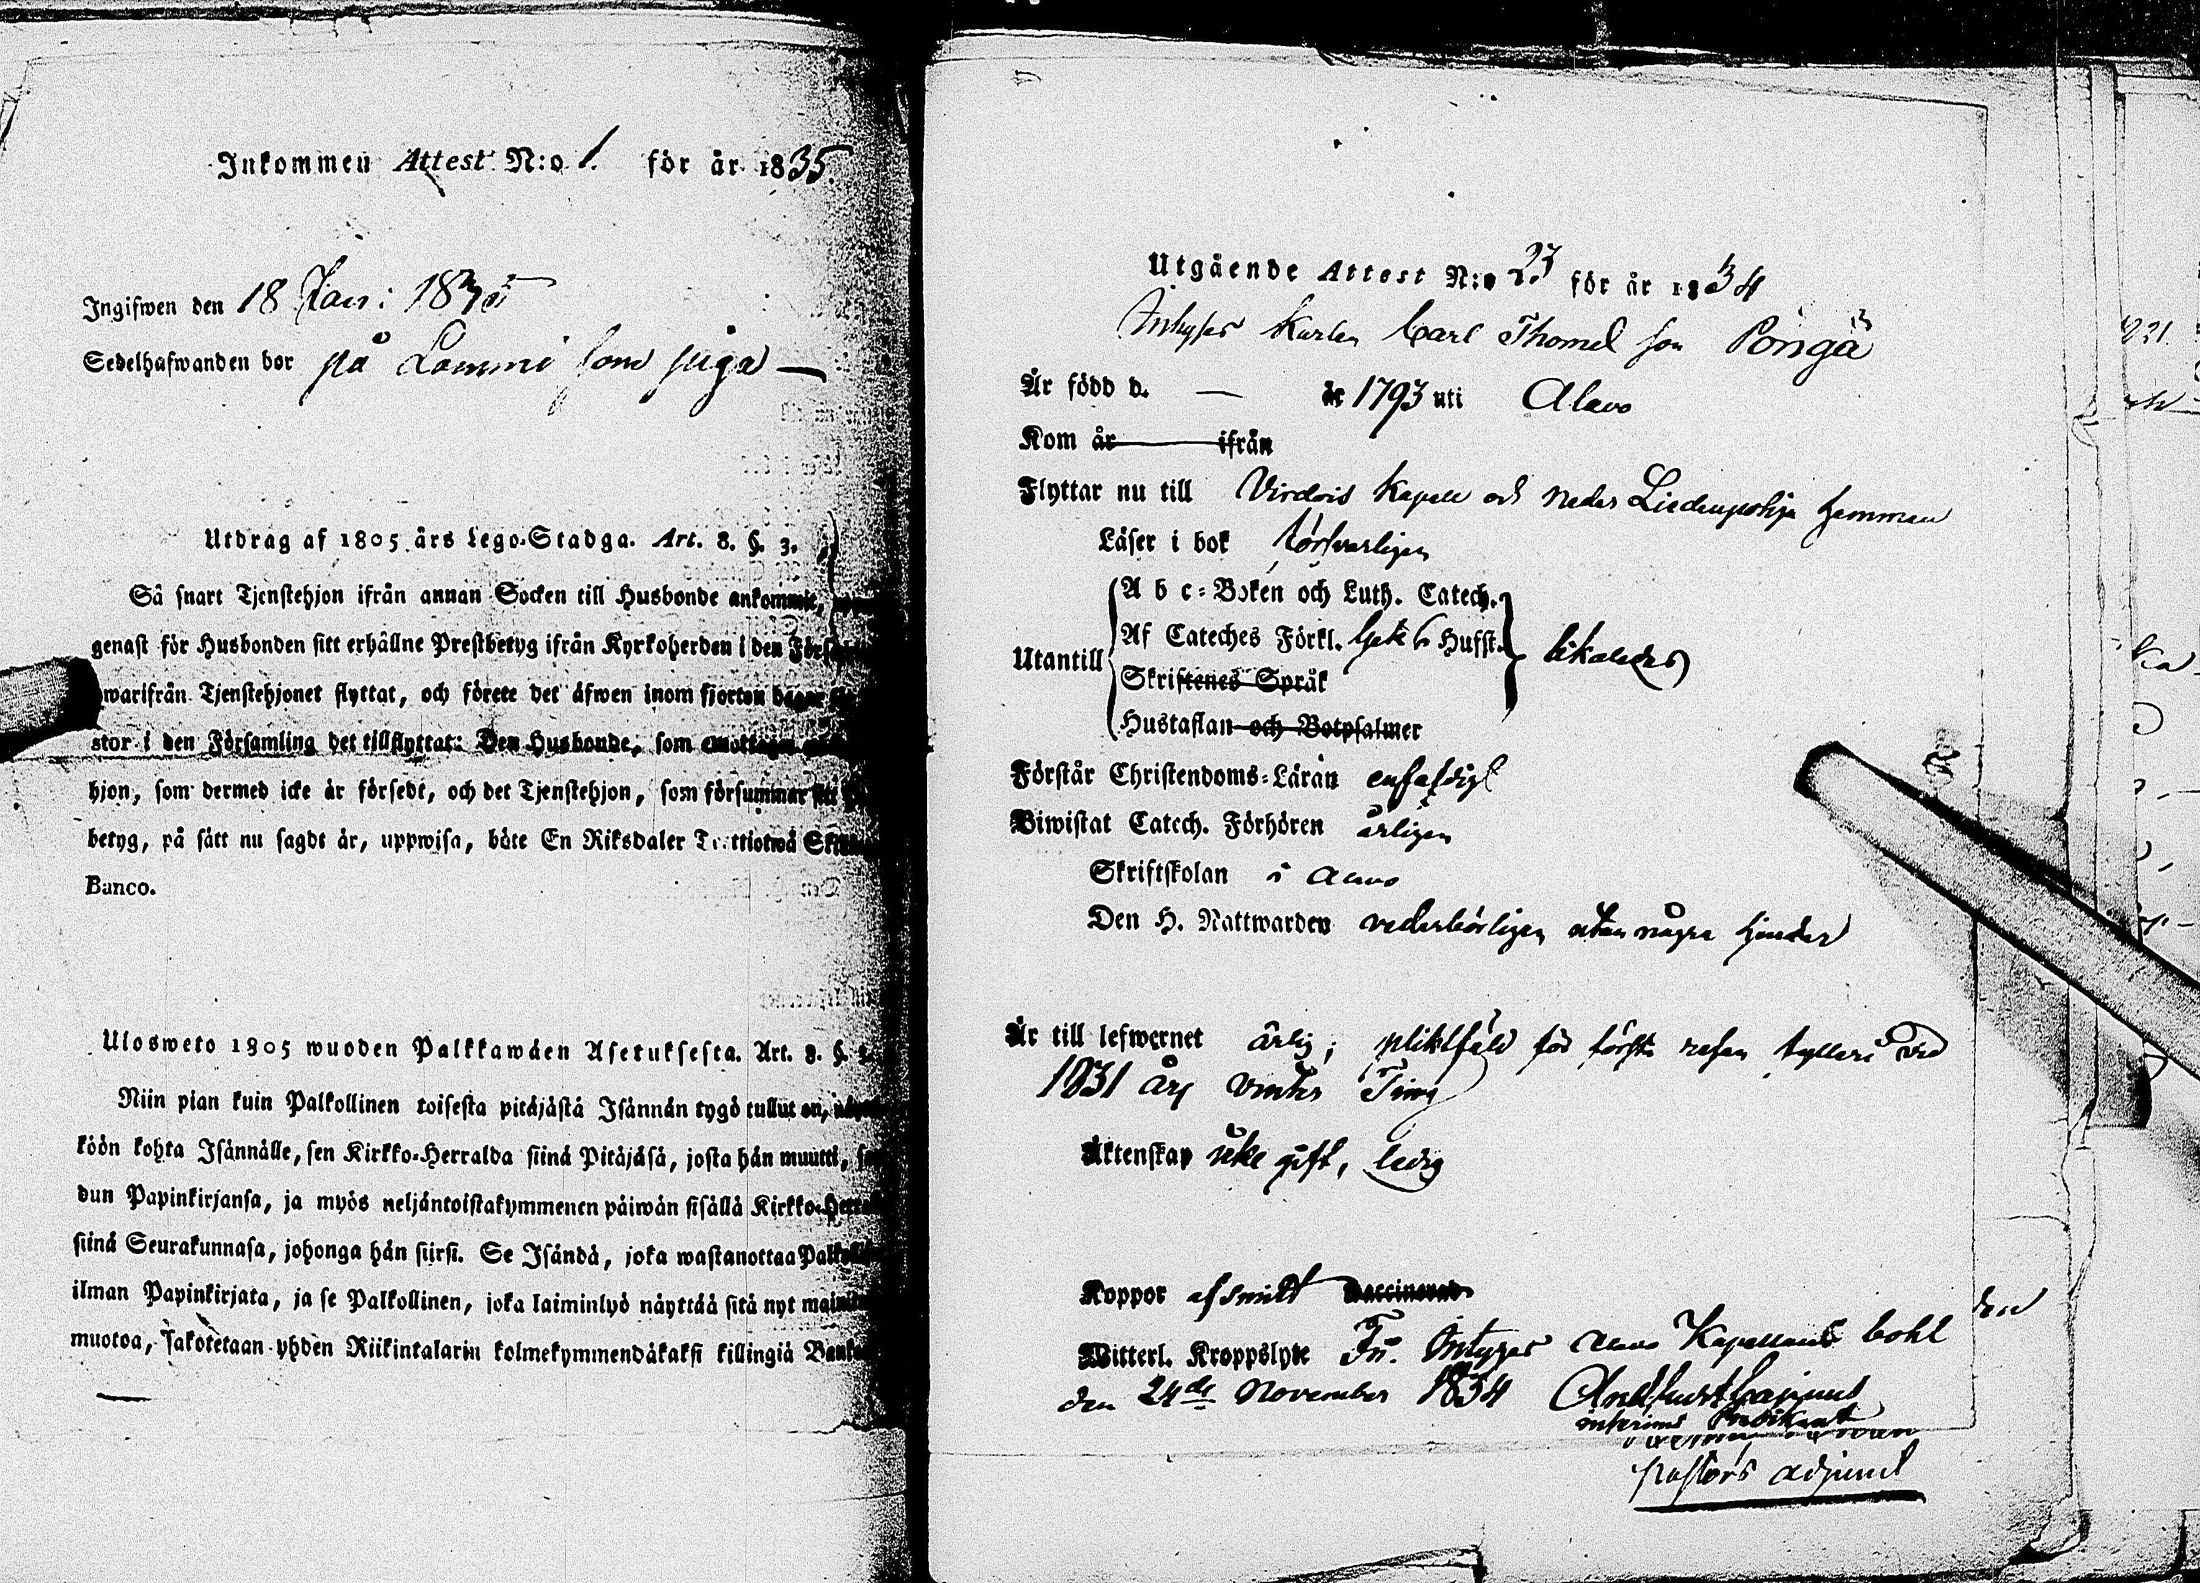 Inkommen Attest N:o 1. för år 1835.
Ingifwen den 18 Jan: 1835
Sedelhafwanden bor på Lammi som piga —
Utdrag af 1805 års Lego-Stadga. Art. 8. §. 3.
Så snart Tjenstehjon ifrån annan Socken till Husbonde ankommit,
genast för Husbonden sitt erhållne Prestbetyg ifrån Kyrkoherden i den
hwarifrån Tjenstehjonet flyttat, och förete det äfwen inom fjorton dagar
stor i den Församling det tillflyttat: Den Husbonde, som emottager
hjon, som dermed icke är försedt, och det Tjenstehjon, som försummar sitt
betyg, på sätt nu sagdt är, uppwisa, böte En Riksdaler Trettiotwå
Banco.
Ulosweto 1805 wuoden Palkkawäen Asetuksesta. Art. 8. §.
Niin pian kuin Palkollinen toisesta pitäjästä Isännän tygö tullut on,
köön kohta Isännälle, sen Kirkko-Herralda siinä Pitäjäsä, josta hän muutti,
dun Papinkirjansa, ja myös neljäntoistakymmenen päiwän sisällä Kirkko-
siinä Seurakunnasa, johonga hän siirsi. Se Isändä, joka wastanottaa
ilman Papinkirjata, ja se Palkollinen, joka laiminlyö näyttää sitä nyt
muotoa, sakotetaan yhden Riikintalarin kolmekymmendäkaksi killingiä
Utgående Attest N:o 23 för år 1834
Inhyses Karlen Carl Thomsson Pöngä
År född d. — år 1793 uti Alavo
Kom år ifrån
Flyttar nu till Virdois Kapell och Neder Liedenpohja hemman
Läser i bok försvarligen
Utantill
A b c-Boken och Luth. Catech.
Af Cateches Förkl. Hufst.
Skriftenes Språk
Hustaflan och Botpsalmer
likaledes
Förstår Christendoms-Läran enfaldigt
Biwistat Catech. Förhören årligen
Skriftskolan i Alavo
Den H. Nattwarden vederbörligen utan några hinder
Är till lefwernet ärlig; pliktfäld för första resan fylleri vid
1831 års Vinter Ting
Äktenskap icke gift, ledig
Koppor Vaccinerad
Witterl. Kroppslyte Fri. Intygar Alavo Kapellans bohl
den 24de November 1834
interims Predikant
pastors adjunct